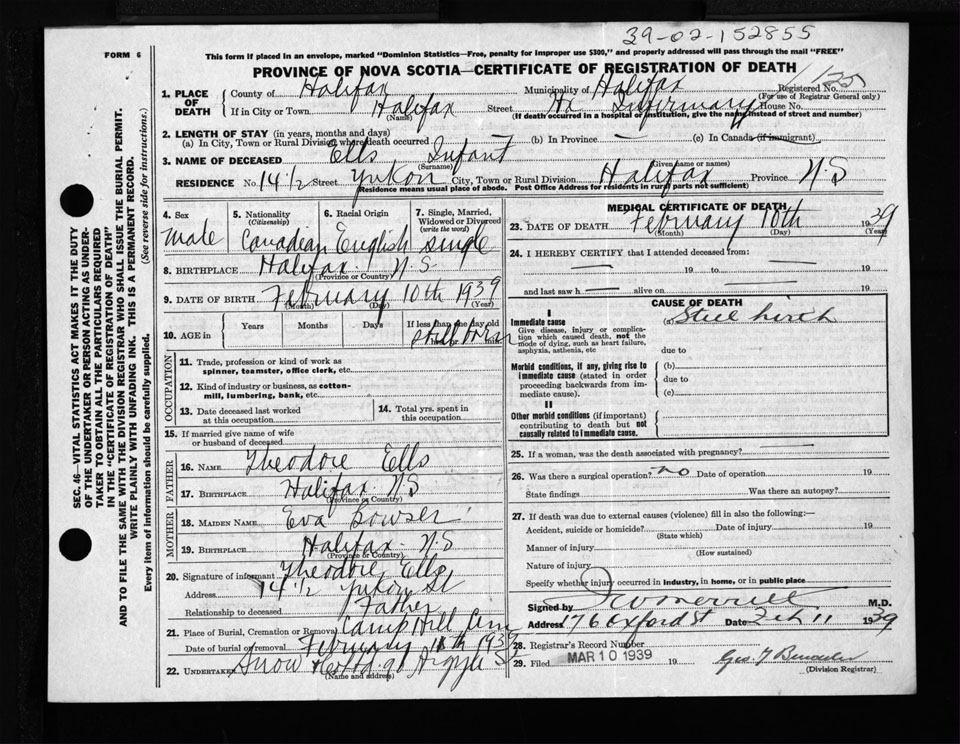 39-02-152855
FORM 6
This form if placed in an envelope, marked "Dominion Statistics—Free, penalty for improper use $300," and properly addressed will pass through the mail "FREE"
PROVINCE OF NOVA SCOTIA—CERTIFICATE OF REGISTRATION OF DEATH
1. PLACE OF DEATH
County of Halifax Municipality of Halifax Registered No.
(For use of Registrar General only)
If in City or Town Halifax Street Hx Infirmary House No.
(Name) (If death occurred in a hospital or institution, give the name instead of street and number)
2. LENGTH OF STAY (in years, months and days)
(a) In City, Town or Rural Division where death occurred (b) In Province — (c) In Canada (if immigrant)
3. NAME OF DECEASED Ells Infant
(Surname) (Given name or names)
RESIDENCE No. 14 1/2 Street Yukon City, Town or Rural Division Halifax Province N.S
Residence means usual place of abode. Post Office Address for residents in rural parts not sufficient)
4. Sex
male
5. Nationality
(Citizenship)
Canadian
6. Racial Origin
English
7. Single, Married, Widowed or Divorced
(write the word)
single
8. BIRTHPLACE Halifax N.S
(Province or Country)
9. DATE OF BIRTH February 10th 1939
(Month) (Day) (Year)
10. AGE in Years Months Days If less than one day old
still born
OCCUPATION
11. Trade, profession or kind of work as spinner, teamster, office clerk, etc.
12. Kind of industry or business, as cotton-mill, lumbering, bank, etc.
13. Date deceased last worked at this occupation
14. Total yrs. spent in this occupation
15. If married give name of wife or husband of deceased
FATHER
16. NAME Theodore Ells
17. BIRTHPLACE Halifax N.S
(Province or Country)
MOTHER
18. MAIDEN NAME Eva Bowser
19. BIRTHPLACE Halifax N.S
(Province or Country)
20. Signature of informant Theodore Ells
Address 14 1/2 Yukon St
Relationship to deceased Father
21. Place of Burial, Cremation or Removal Camp Hill Cem
Date of burial or removal February 11th 1939
22. UNDERTAKER Snow &Co Ltd 91 Argyle St
(Name and address)
MEDICAL CERTIFICATE OF DEATH
23. DATE OF DEATH February 10th 1939
(Month) (Day) (Year)
24. I HEREBY CERTIFY that I attended deceased from:
— 19 to — 19
and last saw h — alive on — 19
CAUSE OF DEATH
I
Immediate cause (a) Still birth
Give disease, injury or complication which caused death, not the mode of dying, such as heart failure, asphyxia, asthenia, etc
due to
Morbid conditions, if any, giving rise to immediate cause (stated in order proceeding backwards from immediate cause).
(b)
due to
(c)
II
Other morbid conditions (if important) contributing to death but not causally related to immediate cause.
25. If a woman, was the death associated with pregnancy? —
26. Was there a surgical operation? no Date of operation 19
State findings Was there an autopsy?
27. If death was due to external causes (violence) fill in also the following:—
Accident, suicide or homicide? Date of injury 19
(State which)
Manner of injury
(How sustained)
Nature of injury
Specify whether injury occurred in industry, in home, or in public place
Signed by M.D.
Address 176 Oxford St Date Feb 11 1939
28. Registrar's Record Number
29. Filed MAR 10 1939 19
(Division Registrar)
SEC. 46—VITAL STATISTICS ACT MAKES IT THE DUTY
OF THE UNDERTAKER OR PERSON ACTING AS UNDER-
TAKER TO OBTAIN ALL THE PARTICULARS REQUIRED
IN THE "CERTIFICATE OF REGISTRATION OF DEATH"
AND TO FILE THE SAME WITH THE DIVISION REGISTRAR WHO SHALL ISSUE THE BURIAL PERMIT.
WRITE PLAINLY WITH UNFADING INK. THIS IS A PERMANENT RECORD.
Every item of information should be carefully supplied. (See reverse side for instructions.)